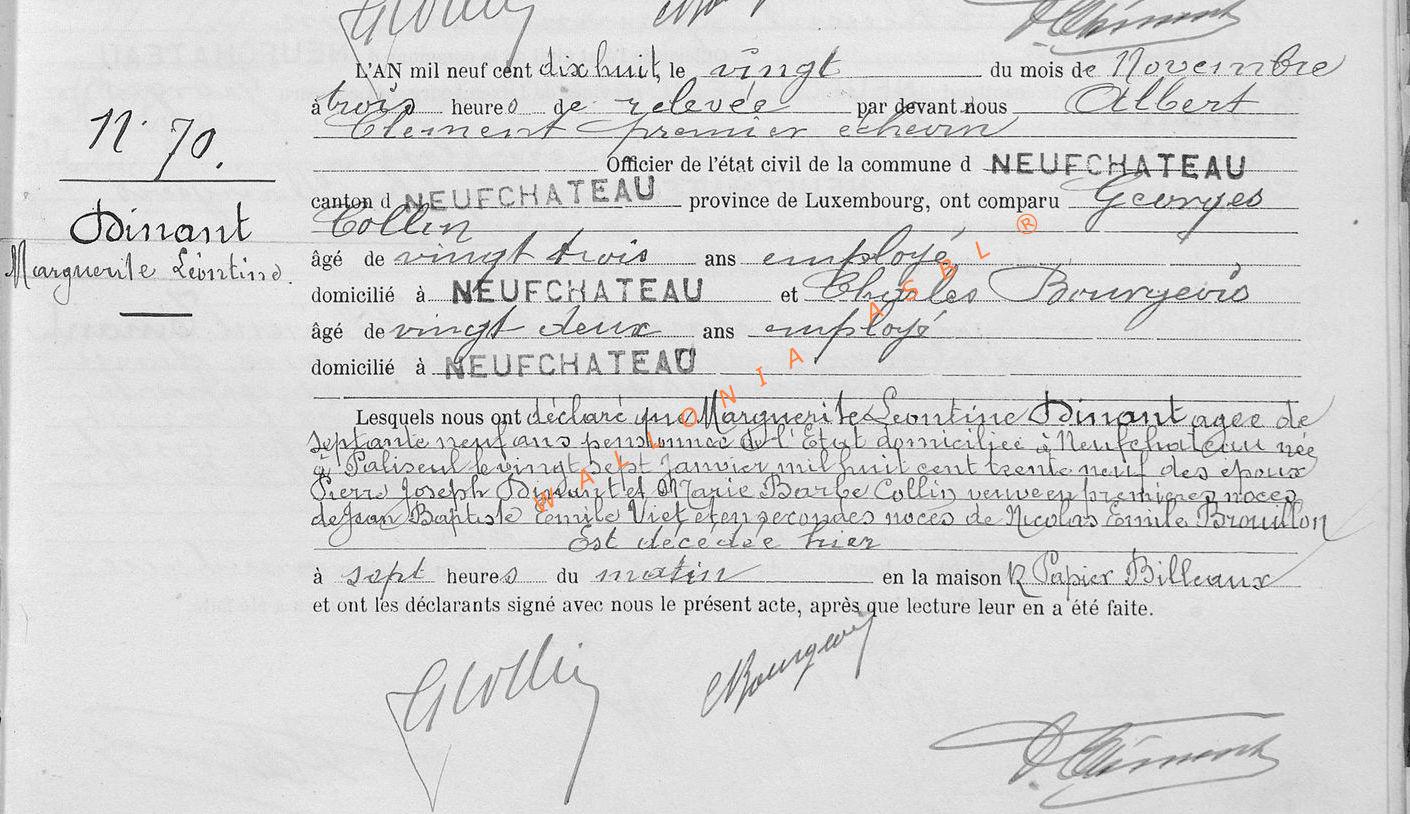 L'AN mil neuf cent dix huit, le vingt du mois de Novembre
à trois heures de relevée par devant nous Albert
Clement premier échevin
Officier de l'état civil de la commune d NEUFCHATEAU
canton d NEUFCHATEAU province de Luxembourg, ont comparu Georges
Collin
âgé de vingt trois ans employé
domicilié à NEUFCHATEAU et Charles Bourgeois
âgé de vingt deux ans employé
domicilié à NEUFCHATEAU
N° 70.
Dinant
Marguerite Léontine.
Lesquels nous ont déclaré que Marguerite Leontine Dinant agée de
septante neuf ans pensionnée de l'Etat domiciliée à Neufchateau née
à Paliseul le vingt sept Janvier mil huit cent trente neuf des epoux
Pierre Joseph Dinant et Marie Barbe Collin veuve en premières noces
de Jean Baptiste Emile Viet et en secondes noces de Nicolas Emile Brouillon
est décédée hier
à sept heures du matin en la maison R Papier Billeaux
et ont les déclarants signé avec nous le présent acte, après que lecture leur en a été faite.
GCollin
CBourgeois
A. Clément
WALLONIA ASBL ®